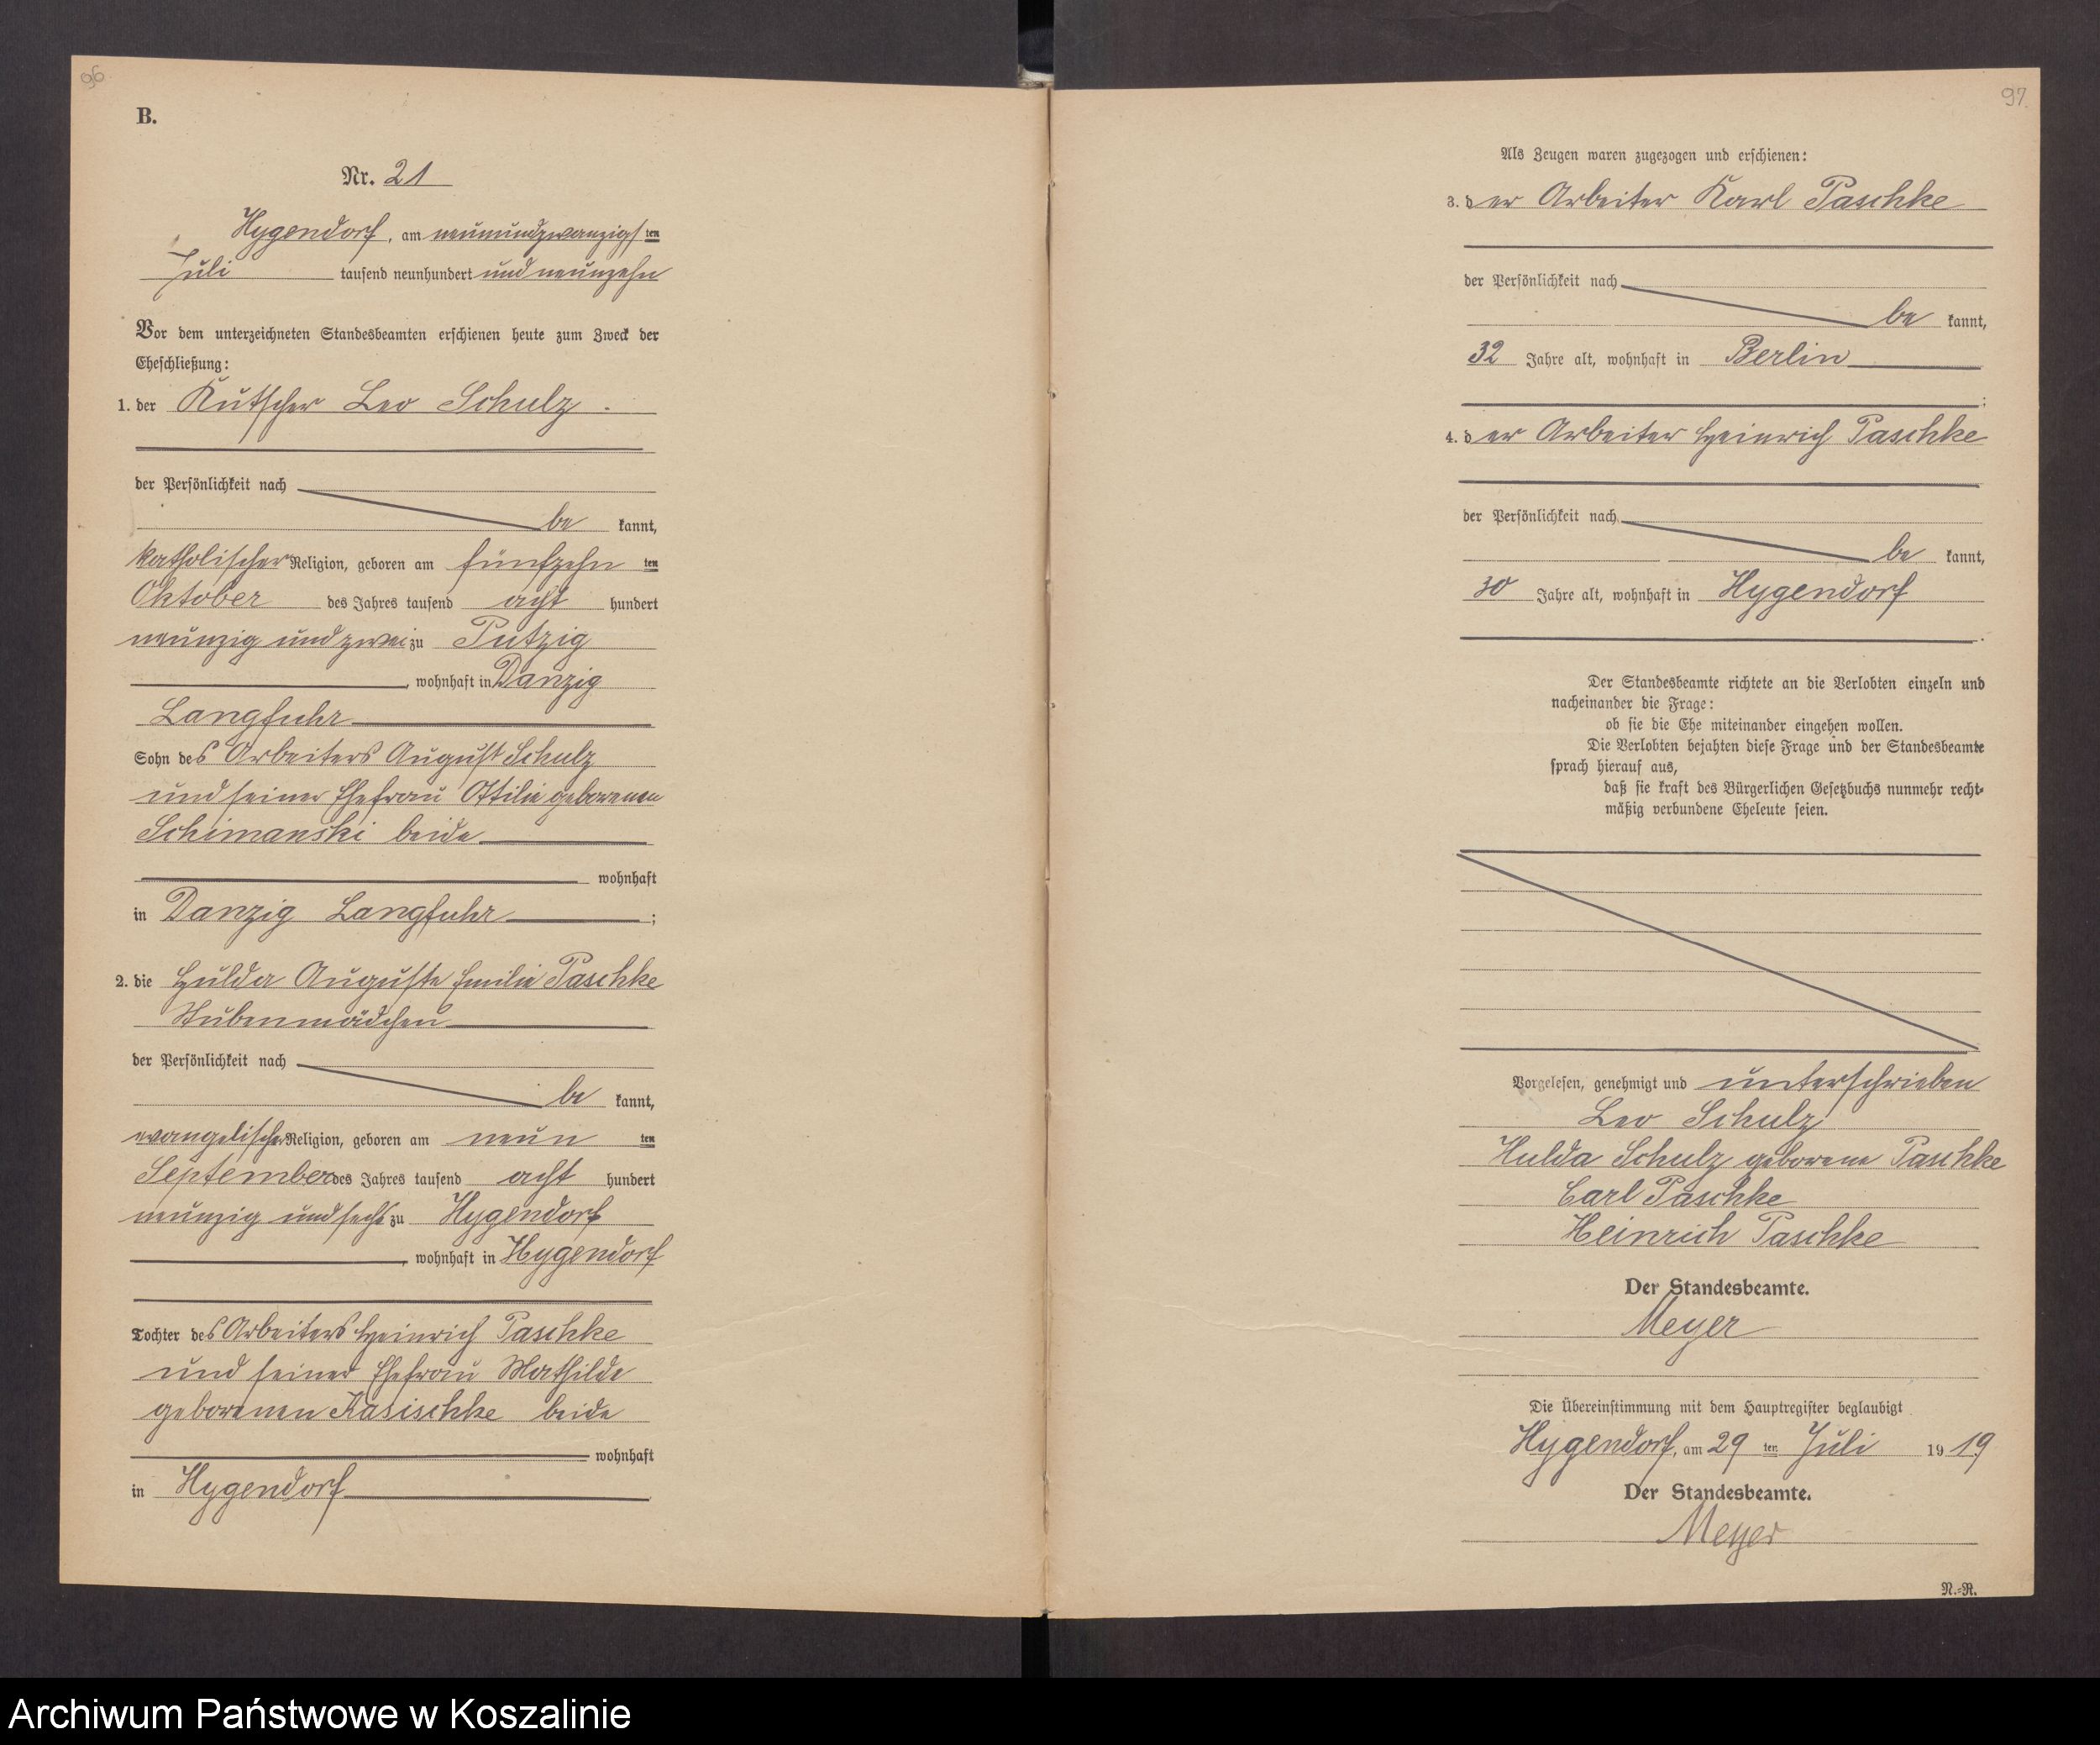 96
B.
Nr. 21
Hygendorf, am neunundzwanzigsten
Juli tausend neunhundert und neunzehn
Vor dem unterzeichneten Standesbeamten erschienen heute zum Zweck der
Eheschließung:
1. der Kutscher Leo Schulz.
der Persönlichkeit nach
be kannt,
katholischer Religion, geboren am fünfzehn ten
Oktober des Jahres tausend acht hundert
neunzig und zwei zu Putzig
, wohnhaft in Danzig
Langfuhr
Sohn des Arbeiters August Schulz
und seiner Ehefrau Ottilie geborenen
Schimanski beide
wohnhaft
in Danzig Langfuhr ;
2. die Hulda Auguste Emilie Paschke
Stubenmädchen
der Persönlichkeit nach
be kannt,
evangelischer Religion, geboren am neun ten
September des Jahres tausend acht hundert
neunzig und sechs zu Hygendorf
, wohnhaft in Hygendorf
Tochter des Arbeiters Heinrich Paschke
und seiner Ehefrau Mathilde
geborenen Kasischke beide
wohnhaft
in Hygendorf
97.
Als Zeugen waren zugezogen und erschienen:
3. der Arbeiter Karl Paschke
der Persönlichkeit nach
be kannt,
32 Jahre alt, wohnhaft in Berlin
;
4. der Arbeiter Heinrich Paschke
der Persönlichkeit nach
be kannt,
30 Jahre alt, wohnhaft in Hygendorf
.
Der Standesbeamte richtete an die Verlobten einzeln und
nacheinander die Frage:
ob sie die Ehe miteinander eingehen wollen.
Die Verlobten bejahten diese Frage und der Standesbeamte
sprach hierauf aus,
daß sie kraft des Bürgerlichen Gesetzbuchs nunmehr recht-
mäßig verbundene Eheleute seien.
Vorgelesen, genehmigt und unterschrieben
Leo Schulz
Hulda Schulz geborene Paschke
Carl Paschke
Heinrich Paschke
Der Standesbeamte.
Meyer
Die Übereinstimmung mit dem Hauptregister beglaubigt
Hygendorf, am 29 ten Juli 19 19
Der Standesbeamte.
Meyer
N.-R.
Archiwum Państwowe w Koszalinie